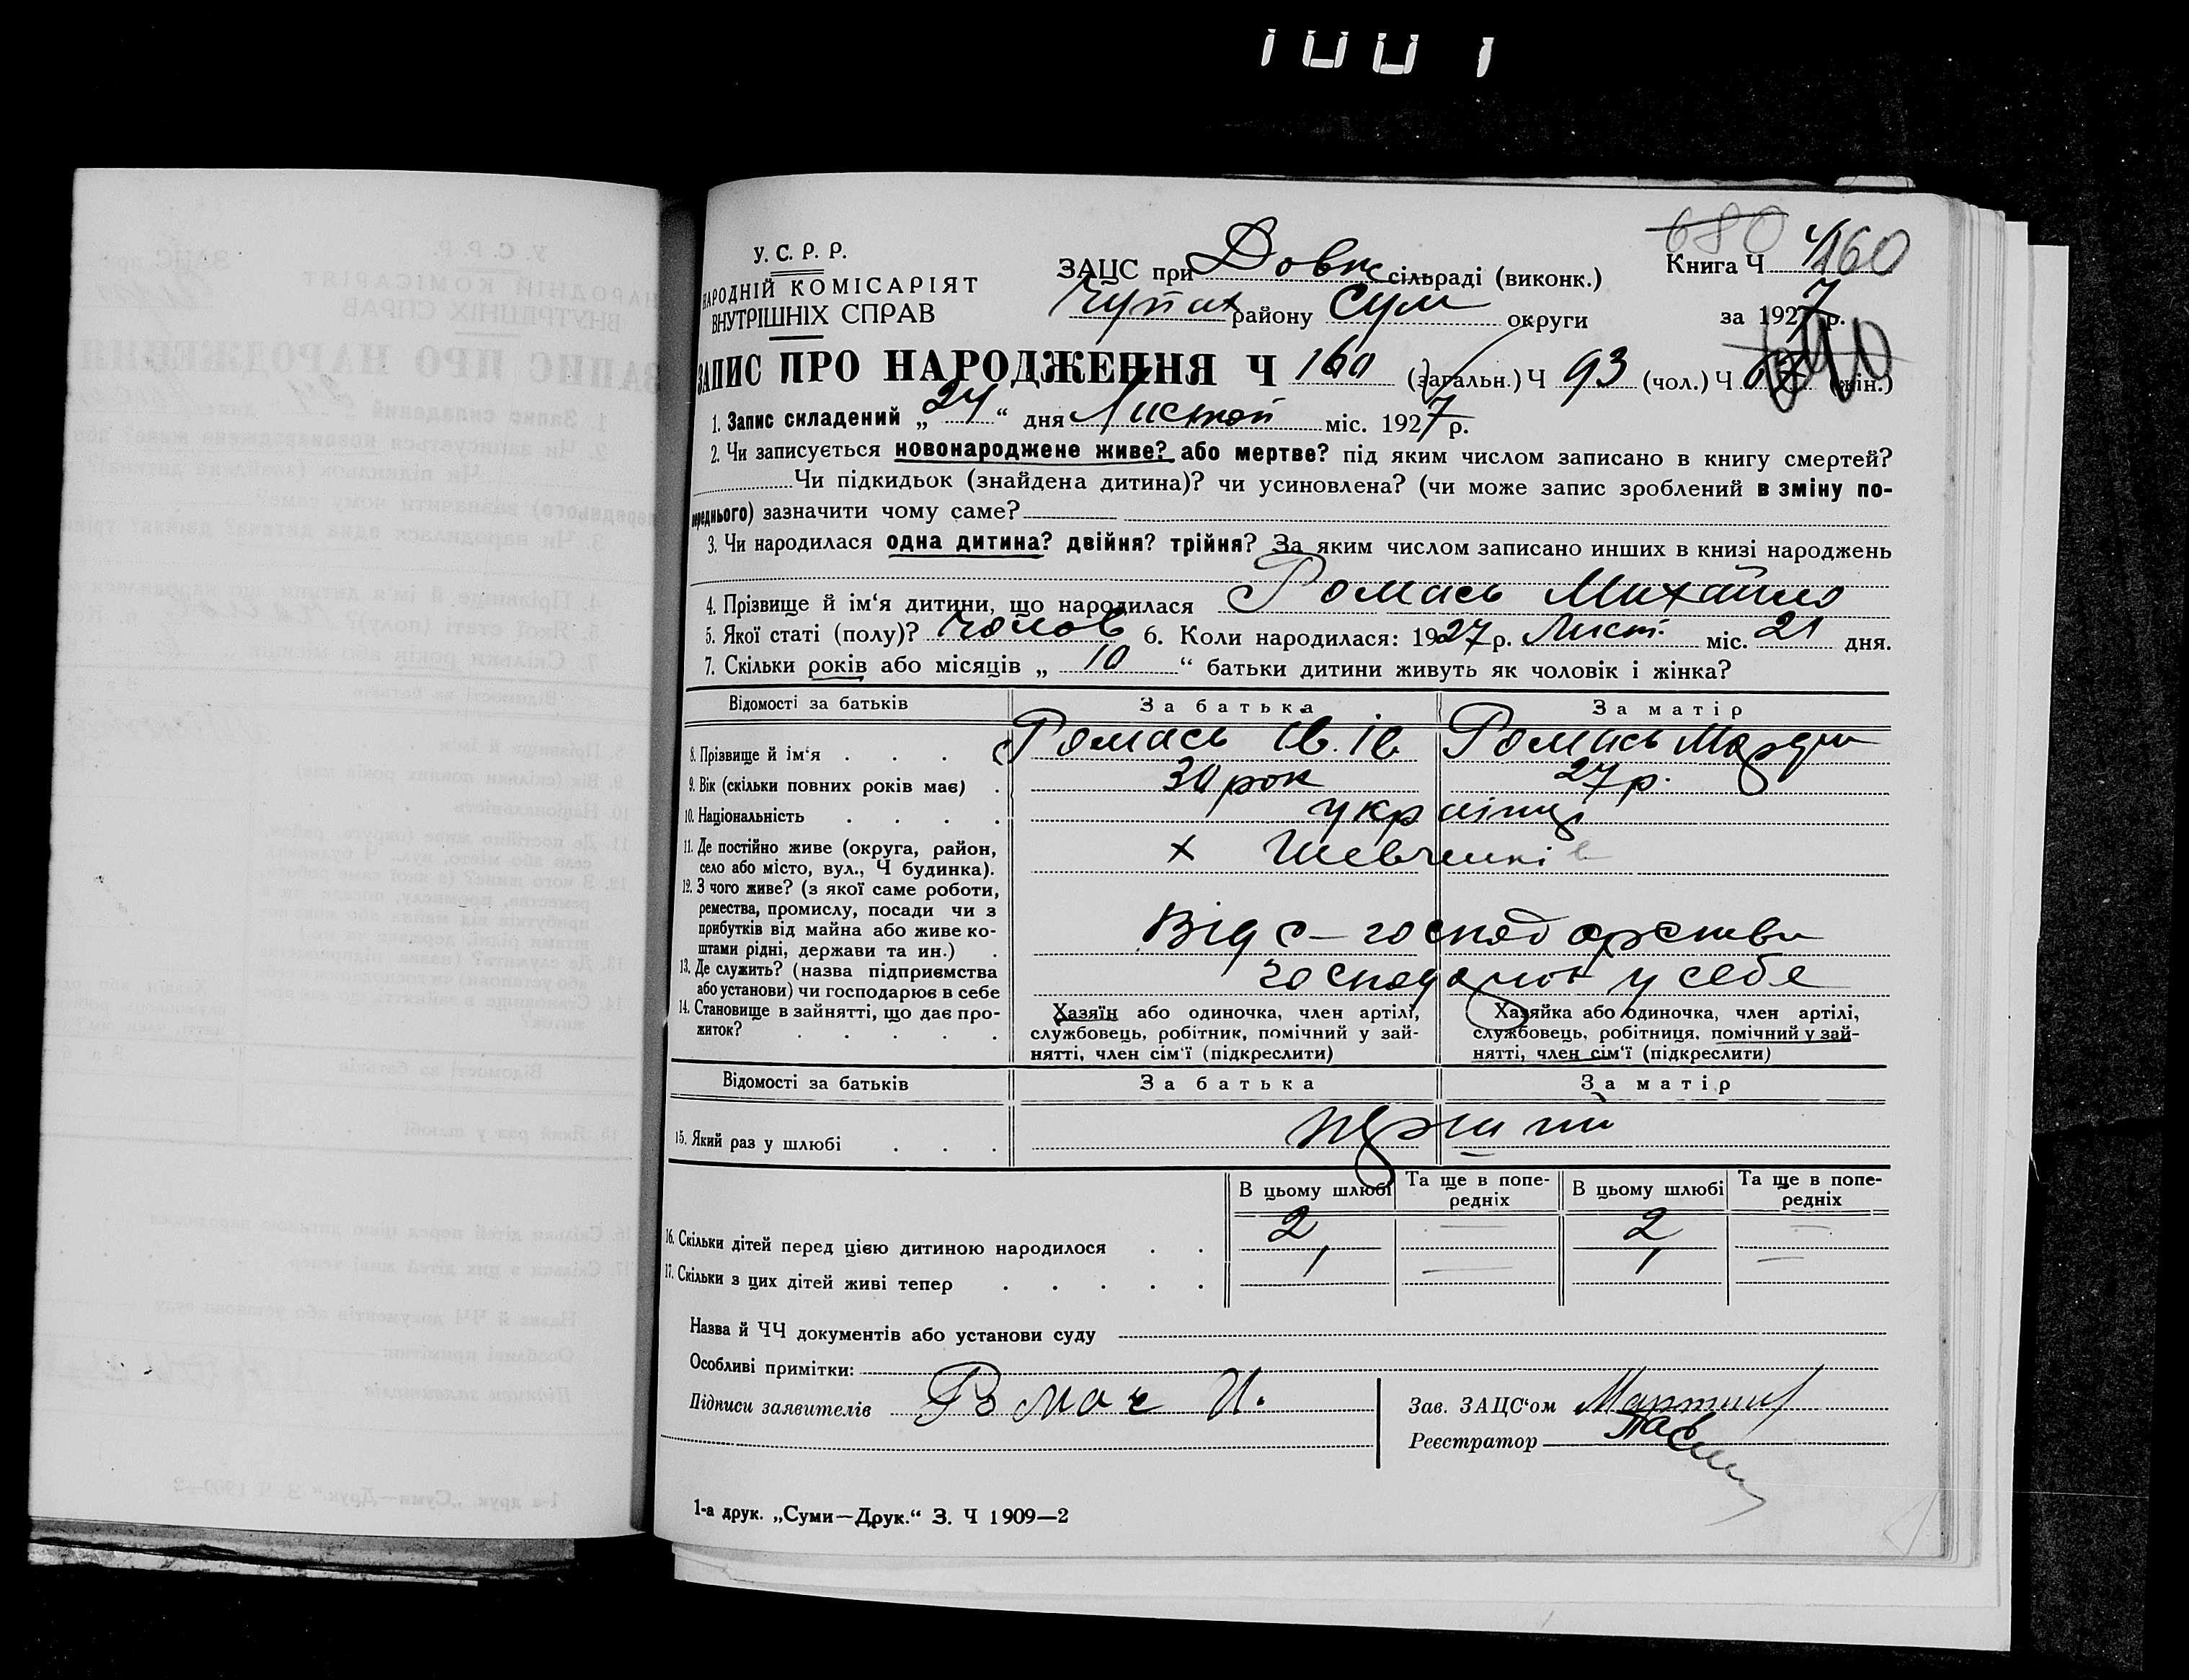 У. С. Р. Р.
НАРОДНІЙ КОМІСАРІЯТ
ВНУТРІШНІХ СПРАВ
ЗАЦС при Довж сільраді (виконк.)
Чупах району Сум округи
680
Книга Ч 4/160
за 1927 р.
ЗАПИС ПРО НАРОДЖЕННЯ Ч 160 (загальн.) Ч 93 (чол.) Ч (жін.)
1. Запис складений „24“ дня Листоп міс. 1927 р.
2. Чи записується новонароджене живе? або мертве? під яким числом записано в книгу смертей?
Чи підкидьок (знайдена дитина)? чи усиновлена? (чи може запис зроблений в зміну по-
переднього) зазначити чому саме?
3. Чи народилася одна дитина? двійня? трійня? За яким числом записано инших в книзі народжень
4. Прізвище й ім‘я дитини, що народилася Ромась Михайло
5. Якої статі (полу)? чолов 6. Коли народилася: 1927 р. Лист. міс. 21 дня.
7. Скільки років або місяців „ 10 “ батьки дитини живуть як чоловік і жінка?
Відомості за батьків За батька За матір
8. Прізвище й ім‘я . . . Ромась Ів. Ів. Ромась
9. Вік (скільки повних років має) . 30 рок 27 р.
10. Національність . . . . українці
11. Де постійно живе (округа, район,
село або місто, вул., Ч будинка). х Шевченків
12. З чого живе? (з якої саме роботи,
ремества, промислу, посади чи з
прибутків від майна або живе ко-
штами рідні, держави та ин.) . Від с-господарства
13. Де служить? (назва підприємства
або установи) чи господарює в себе у себе
14. Становище в зайнятті, що дає про-
житок? . . . . .
Хазяїн або одиночка, член артілі,
службовець, робітник, помічний у зай-
нятті, член сім‘ї (підкреслити)
Хазяйка або одиночка, член артілі,
службовець, робітниця, помічний у зай-
нятті, член сім‘ї (підкреслити)
Відомості за батьків За батька За матір
15. Який раз у шлюбі . . .
В цьому шлюбі Та ще в попе-
редніх В цьому шлюбі Та ще в попе-
редніх
16. Скільки дітей перед цією дитиною народилося . . 2 — 2 —
17. Скільки з цих дітей живі тепер . . . . . 1 — 1 —
Назва й ЧЧ документів або установи суду
Особливі примітки:
Підписи заявителів И.
Зав. ЗАЦС‘ом
Реєстратор
1-а друк. „Суми—Друк.“ З. Ч 1909—2